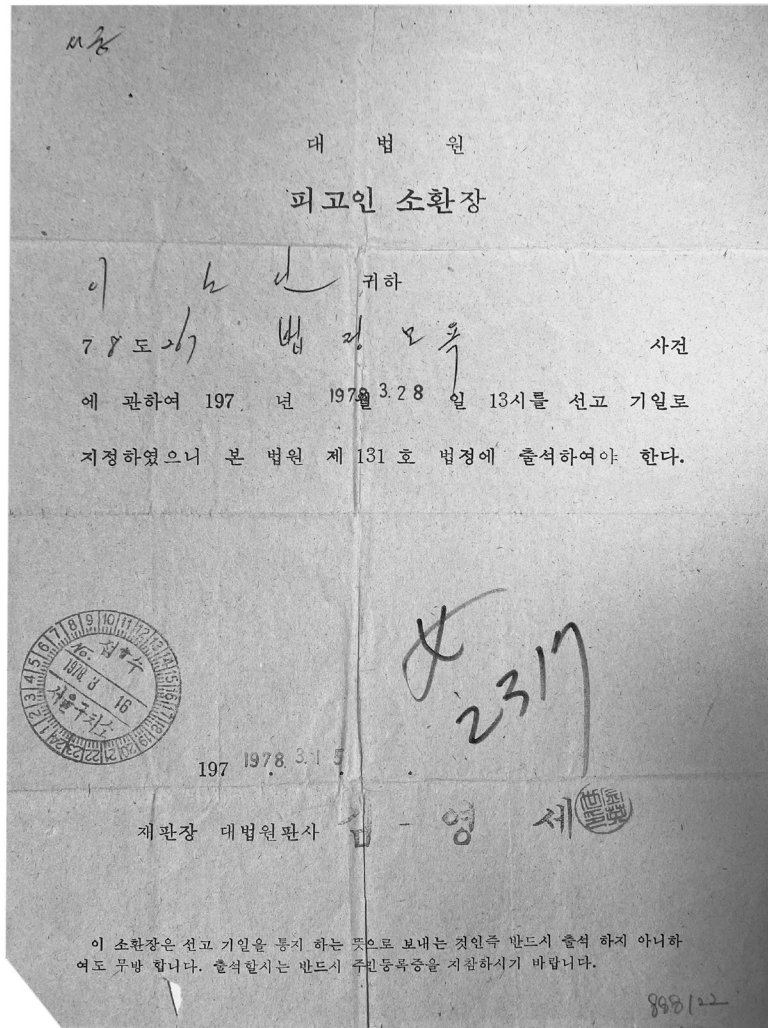 대 법 원
피고인 소환장
이 귀하
7 8 도 267 법정모욕 사건
에 관하여 197 년 1978 월 3.28 일 13시를 선고 기일로
지정하였으니 본 법원 제 131 호 법정에 출석하여야 한다.
No. 접수
1978. 3. 16
서울구치소
2317
197 1978. 3. 15
재판장 대법원판사 영 세
이 소환장은 선고 기일을 통지 하는 뜻으로 보내는 것인즉 반드시 출석 하지 아니하
여도 무방 합니다. 출석할시는 반드시 주민등록증을 지참하시기 바랍니다.
888122